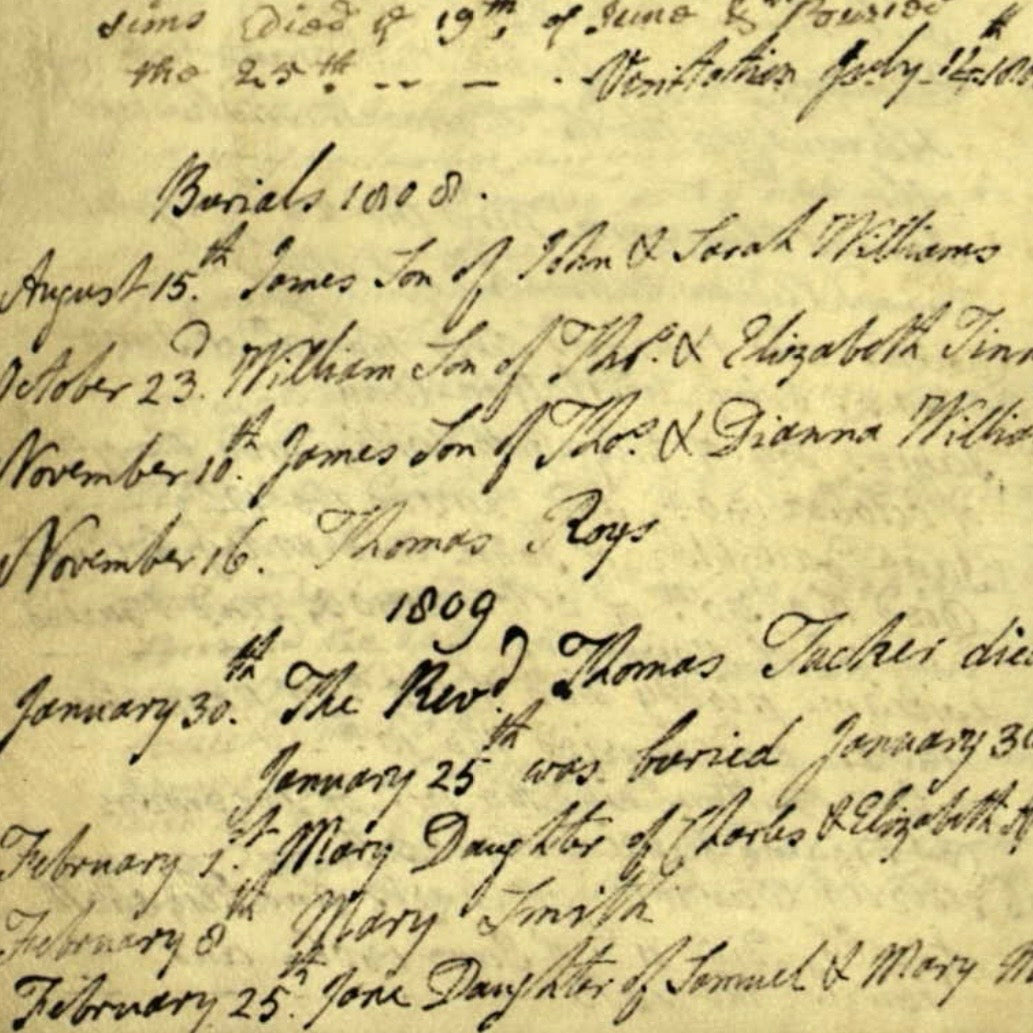 sims Died ye 19th, of June & Buried
the 25th. -- - . Visitation July 12th 180
Burials 1808.
August 15.th James Son of John & Sarah Williams
October 23.d William Son of Thos. & Elizabeth Tinn
November 10.th James Son of Thos. & Dianna Willia
November 16. Thomas Roys
1809
January 30.th The Revd. Thomas Tucker died
January 25th was buried January 30
February 1.st Mary Daughter of Charles & Elizabeth
February 8th Mary Smith
February 25.th Jane Daughter of Samuel & Mary